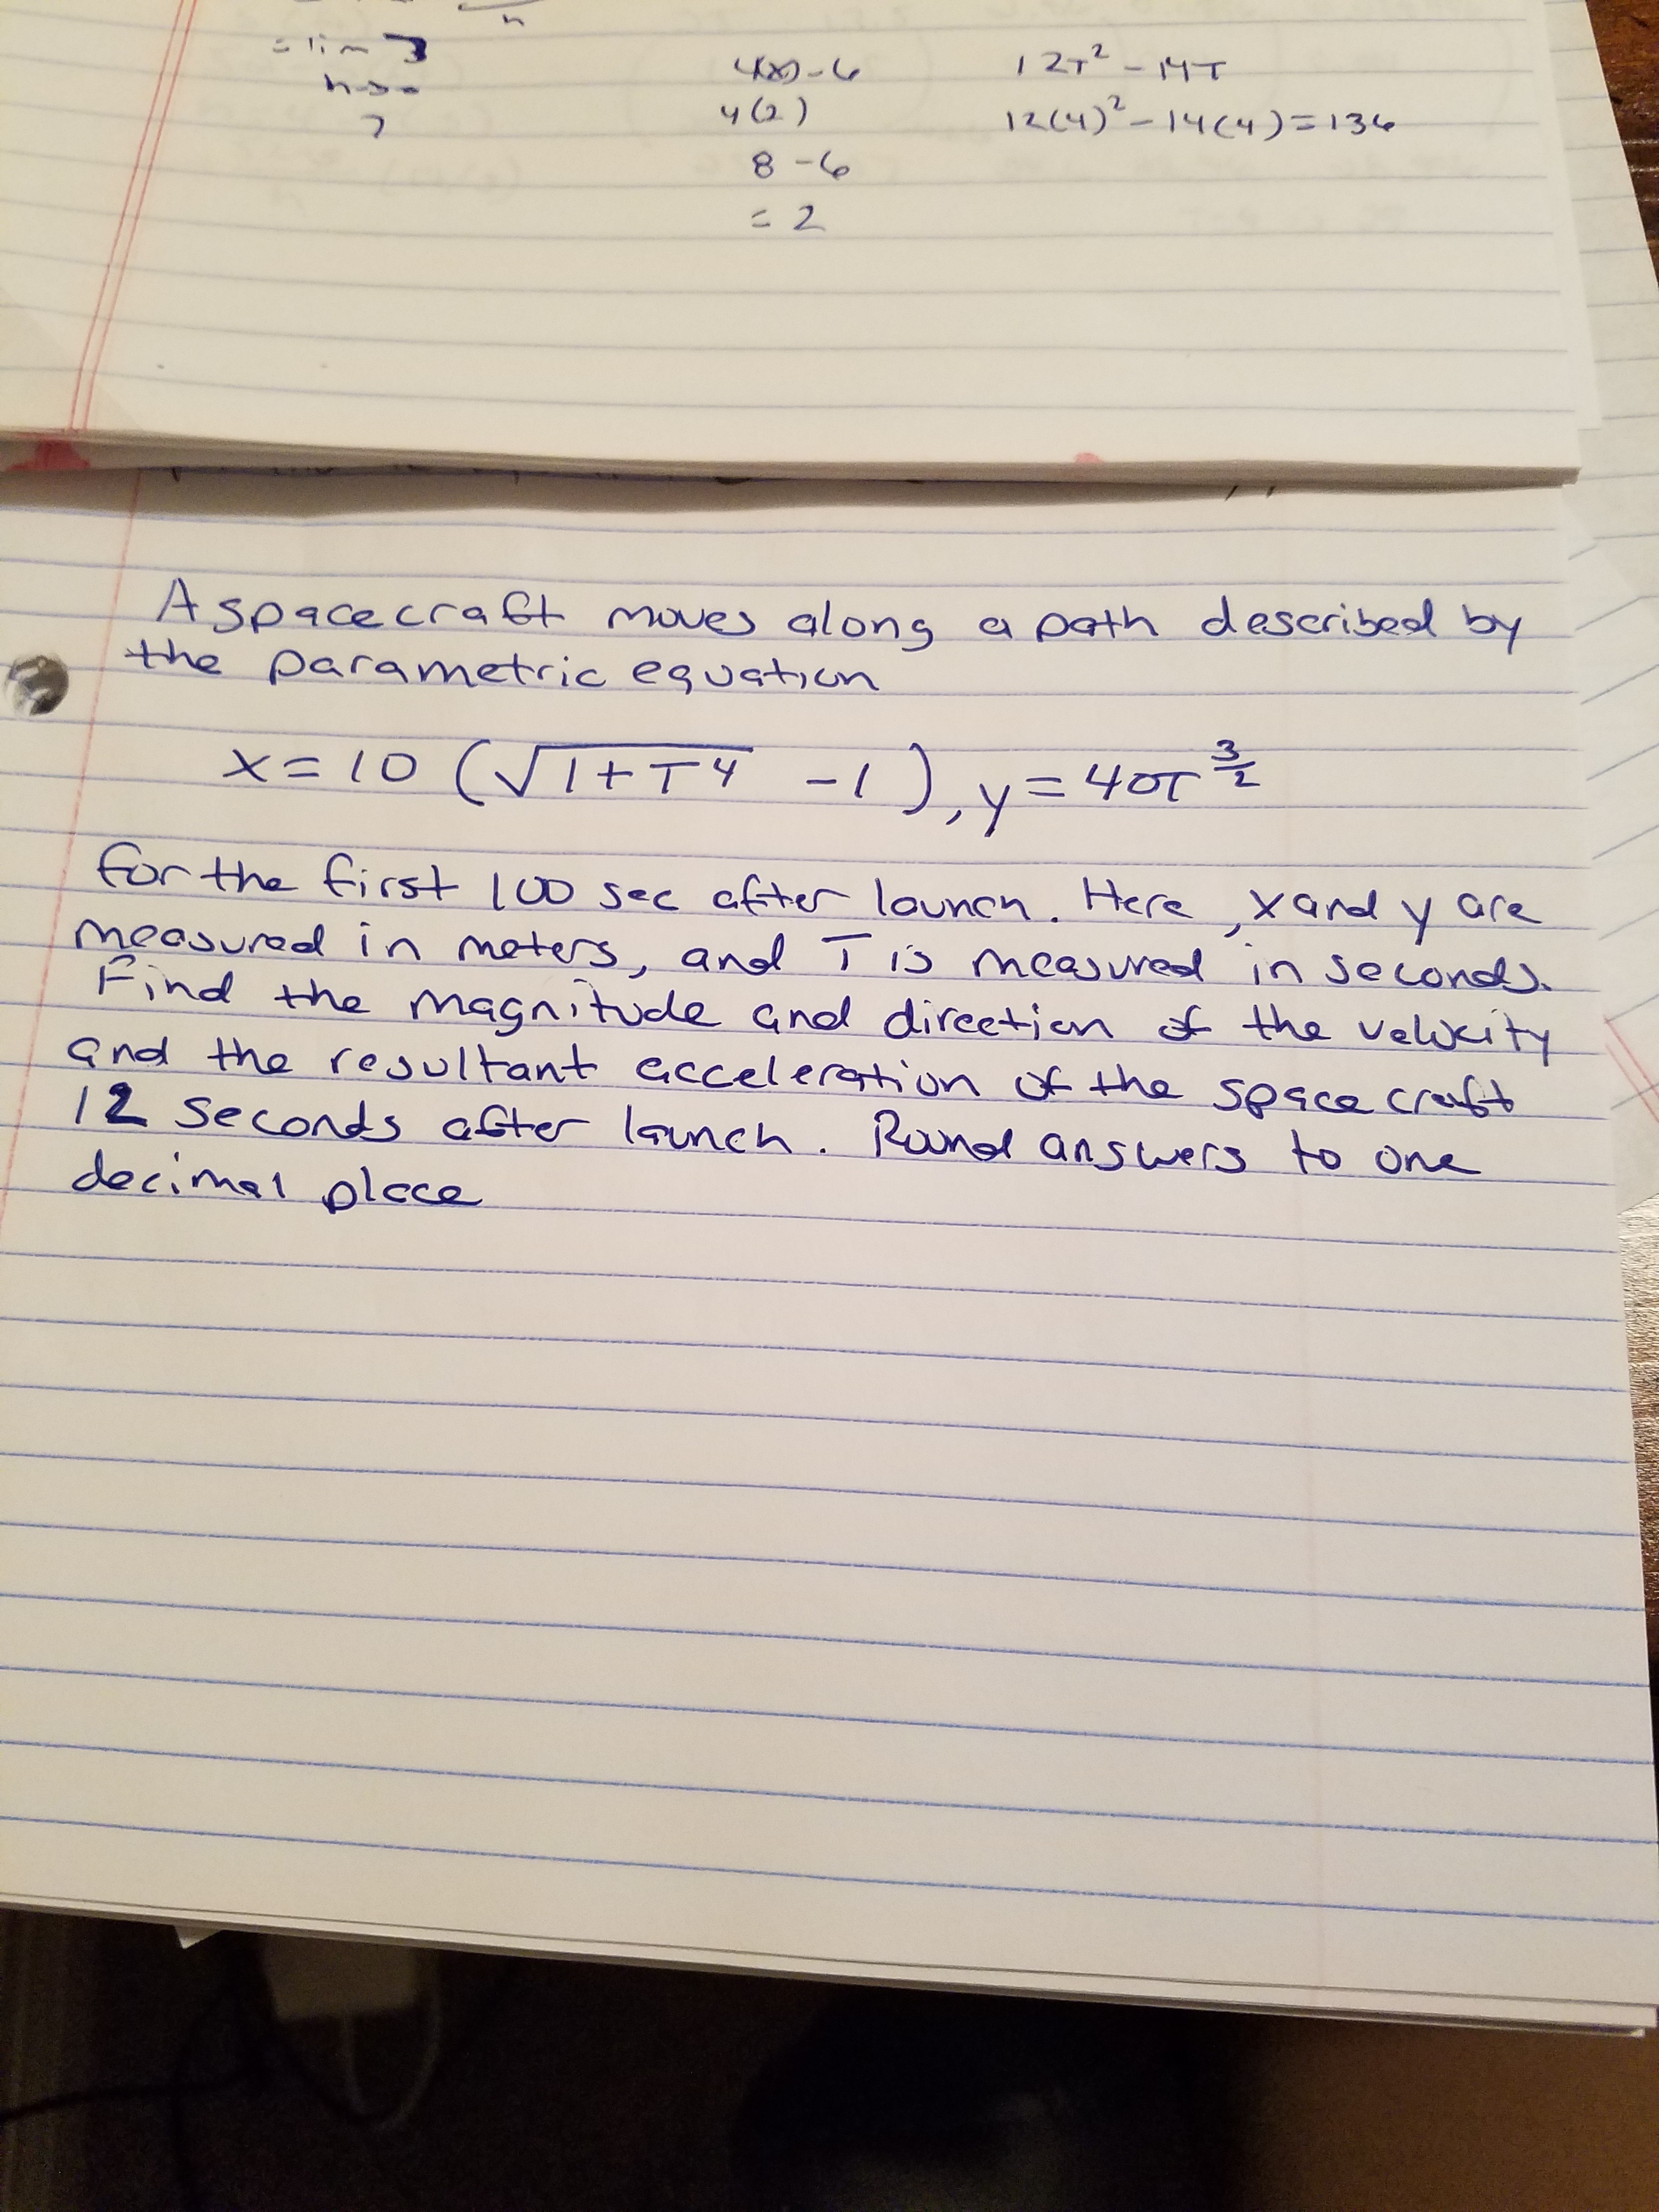 n
= lim 3
n→∞
4(x)-6 12T² - 14T
4(2) 12(4)² - 14(4) = 136
8 - 6
= 2
A spacecraft moves along a path described by
the parametric equation
x = 10 (√1+T⁴ - 1), y = 40T^3/2
for the first 100 sec after launch. Here, x and y are
measured in meters, and T is measured in seconds.
Find the magnitude and direction of the velocity
and the resultant acceleration of the space craft
12 seconds after launch. Round answers to one
decimal place